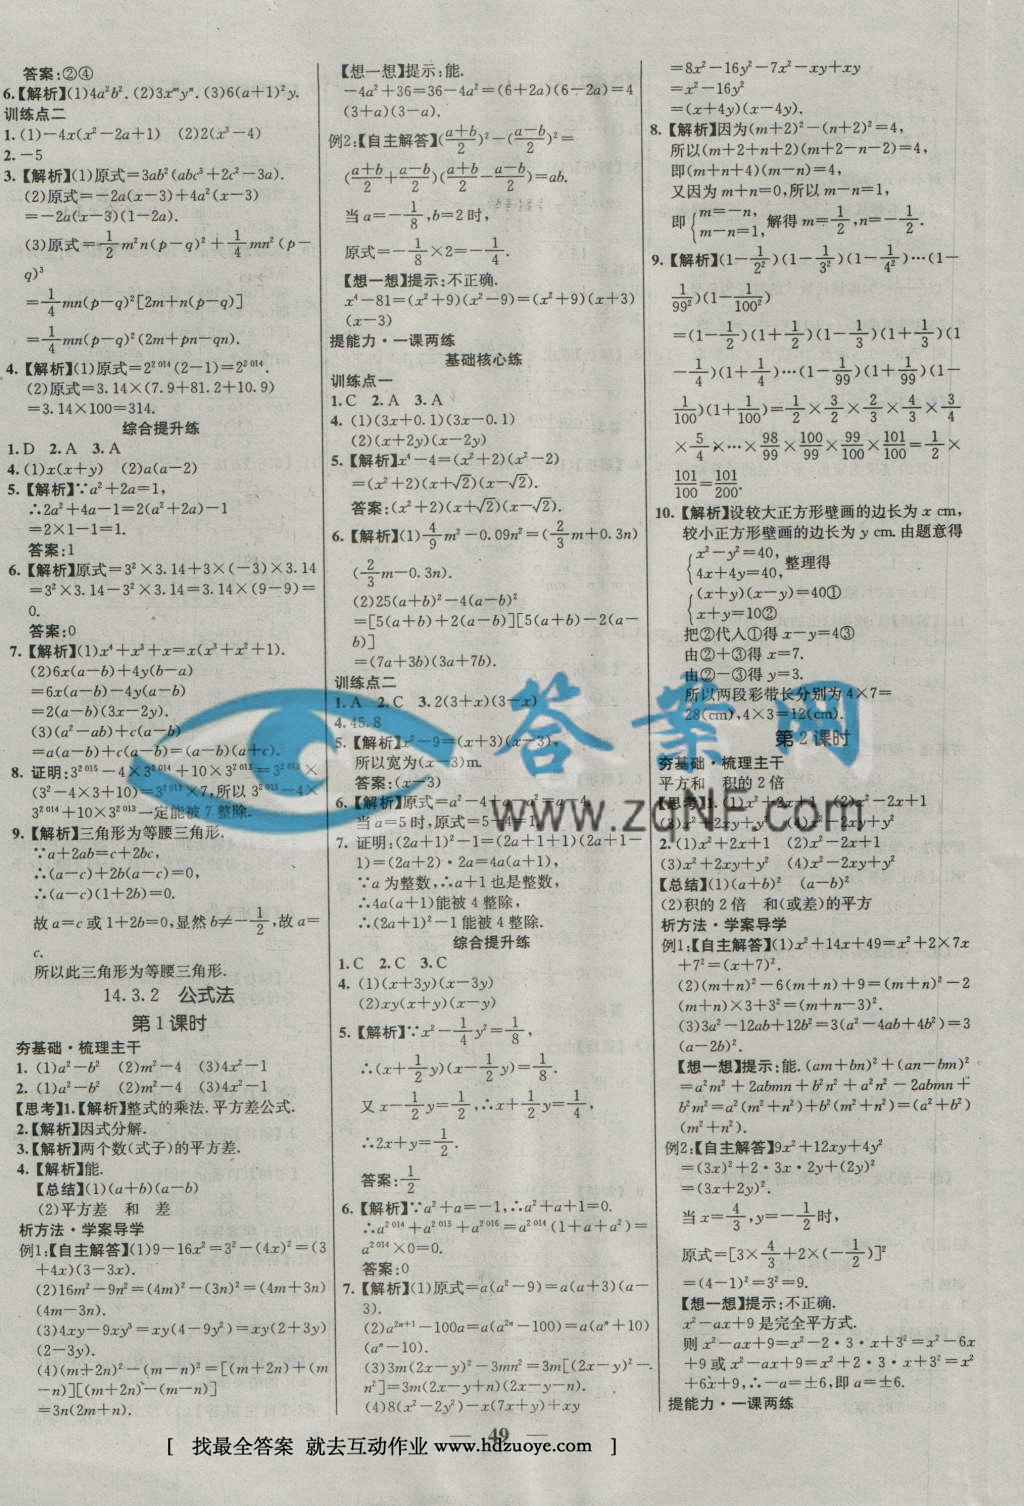 答案:②④
6.【解析】(1)4a²b². (2)3xᵐyⁿ. (3)6(a+1)²y.
训练点二
1. (1)-4x(x²-2a+1) (2)2(x³-4)
2. -5
3.【解析】(1)原式=3ab²(abc³+2c²-3a).
(2)原式=-2a(x-3)+4a²(x-3)
=-2a(x-3)(1-2a).
(3)原式=1/2m²n(p-q)²+1/4mn²(p-
q)³
=1/4mn(p-q)²[2m+n(p-q)]
=1/4mn(p-q)²(2m+pn-qn).
4.【解析】(1)原式=2²⁰¹⁴(2-1)=2²⁰¹⁴.
(2)原式=3.14×(7.9+81.2+10.9)
=3.14×100=314.
综合提升练
1. D 2. A 3. A
4. (1)x(x+y) (2)a(a-2)
5.【解析】∵a²+2a=1,
∴2a²+4a-1=2(a²+2a)-1
=2×1-1=1.
答案:1
6.【解析】原式=3²×3.14+3×(-3)×3.14
=3²×3.14-3²×3.14=3.14×(9-9)=
0.
答案:0
7.【解析】(1)x⁴+x³+x=x(x³+x²+1).
(2)6x(a-b)+4y(b-a)
=6x(a-b)-4y(a-b)
=2(a-b)(3x-2y).
(3)(a²-ab)+c(a-b)
=a(a-b)+c(a-b)=(a-b)(a+c).
8. 证明:3²⁰¹⁵-4×3²⁰¹⁴+10×3²⁰¹³=3²⁰¹³×
(3²-4×3+10)=3²⁰¹³×7,所以3²⁰¹⁵-4×
3²⁰¹⁴+10×3²⁰¹³一定能被7整除.
9.【解析】三角形为等腰三角形.
∵a+2ab=c+2bc,
∴(a-c)+2b(a-c)=0,
∴(a-c)(1+2b)=0.
故a=c或1+2b=0,显然b≠-1/2,故a=
c.
所以此三角形为等腰三角形.
14.3.2 公式法
第1课时
夯基础·梳理主干
1. (1)a²-b² (2)m²-4 (3)4x²-1
2. (1)a²-b² (2)m²-4 (3)4x²-1
【思考】1.【解析】整式的乘法.平方差公式.
2.【解析】因式分解.
3.【解析】两个数(式子)的平方差.
4.【解析】能.
【总结】(1)(a+b)(a-b)
(2)平方差 和 差
析方法·学案导学
例1:【自主解答】(1)9-16x²=3²-(4x)²=(3
+4x)(3-3x).
(2)16m²-9n²=(4m)²-(3n)²=(4m+3n)
(4m-3n).
(3)4xy-9xy³=xy(4-9y²)=xy(2+3y)
(2-3y).
(4)(m+2n)²-(m-n)²=[(m+2n)+(m
-n)][(m+2n)-(m-n)]
=3n(2m+n).
【想一想】提示:能.
-4a²+36=36-4a²=(6+2a)(6-2a)=4
(3+a)(3-a).
例2:【自主解答】((a+b)/2)²-((a-b)/2)²=
((a+b)/2+(a-b)/2)((a+b)/2-(a-b)/2)=ab.
当a=-1/8,b=2时,
原式=-1/8×2=-1/4.
【想一想】提示:不正确.
x⁴-81=(x²+9)(x²-9)=(x²+9)(x+3)
(x-3)
提能力·一课两练
基础核心练
训练点一
1. C 2. A 3. A
4. (1)(3x+0.1)(3x-0.1)
(2)(x+2y)(x-2y)
5.【解析】x⁴-4=(x²+2)(x²-2)
=(x²+2)(x+√2)(x-√2).
答案:(x²+2)(x+√2)(x-√2).
6.【解析】(1)4/9m²-0.09n²=(2/3m+0.3n)
(2/3m-0.3n).
(2)25(a+b)²-4(a-b)²
=[5(a+b)+2(a-b)][5(a+b)-2(a-
b)]
=(7a+3b)(3a+7b).
训练点二
1. A 2. C 3. 2(3+x)(3-x)
4. 45.8
5.【解析】x²-9=(x+3)(x-3),
所以宽为(x-3)m.
答案:(x-3)
6.【解析】原式=a²-4+a-a²=a-4.
当a=5时,原式=5-4=1.
7. 证明:(2a+1)²-1=(2a+1+1)(2a+1-
1)=(2a+2)·2a=4a(a+1),
∵a为整数,∴a+1也是整数,
∴4a(a+1)能被4整除,
∴(2a+1)²-1能被4整除.
综合提升练
1. C 2. C 3. C
4. (1)(x+3y)(x-3y)
(2)xy(x+y)(x-y)
5.【解析】∵x²-1/4y²=1/8,
∴(x+1/2y)(x-1/2y)=1/8.
又x-1/2y=1/2,∴x+1/2y=1/4,
∴2x+y=1/2.
答案:1/2
6.【解析】∵a²+a=-1,∴a²+a+1=0.
∴a²⁰¹⁴+a²⁰¹⁵+a²⁰¹⁶=a²⁰¹⁴(1+a+a²)=
a²⁰¹⁴×0=0.
答案:0
7.【解析】(1)原式=a(a²-9)=a(a+3)(a-
3).
(2)a²ⁿ⁺¹-100a=a(a²ⁿ-100)=a(aⁿ+10)
(aⁿ-10).
(3)3m(2x-y)²-3mn²=3m[(2x-y)²-
n²]=3m(2x-y+n)(2x-y-n).
(4)8(x²-2y²)-x(7x+y)+xy
=8x²-16y²-7x²-xy+xy
=x²-16y²
=(x+4y)(x-4y).
8.【解析】因为(m+2)²-(n+2)²=4,
所以(m+2+n+2)(m+2-n-2)=4,
即(m+n+4)(m-n)=4,
又因为m+n=0,所以m-n=1,
即{m=-n, m-n=1, 解得m=1/2,n=-1/2.
9.【解析】(1-1/2²)(1-1/3²)(1-1/4²)⋯(1-
1/99²)(1-1/100²)
=(1-1/2)(1+1/2)(1-1/3)(1+1/3)(1
-1/4)(1+1/4)⋯(1-1/99)(1+1/99)(1-
1/100)(1+1/100)=1/2×3/2×2/3×4/3×3/4
×5/4×⋯×98/99×100/99×99/100×101/100=1/2×
101/100=101/200.
10.【解析】设较大正方形壁画的边长为x cm,
较小正方形壁画的边长为y cm.由题意得
{x²-y²=40, 4x+4y=40, 整理得
{(x+y)(x-y)=40① x+y=10②
把②代入①得x-y=4③
由②+③得x=7.
由②-③得y=3.
所以两段彩带长分别为4×7=
28(cm),4×3=12(cm).
第2课时
夯基础·梳理主干
平方和 积的2倍
【思考】1. (1)x²+2x+1 (2)x²-2x+1
(3)x²+2xy+y² (4)x²-2xy+y²
2. (1)x²+2x+1 (2)x²-2x+1
(3)x²+2xy+y² (4)x²-2xy+y²
【总结】(1)(a+b)² (a-b)²
(2)积的2倍 和(或差)的平方
析方法·学案导学
例1:【自主解答】(1)x²+14x+49=x²+2×7x
+7²=(x+7)².
(2)(m+n)²-6(m+n)+9=(m+n)²-2
(m+n)×3+3²=(m+n-3)².
(3)3a²-12ab+12b²=3(a²-4ab+4b²)=3
(a-2b)².
【想一想】提示:能.(am+bn)²+(an-bm)²
=a²m²+2abmn+b²n²+a²n²-2abmn+
b²m²=a²(m²+n²)+b²(m²+n²)=(a²+b²)
(m²+n²).
例2:【自主解答】9x²+12xy+4y²
=(3x)²+2·3x·2y+(2y)²
=(3x+2y)².
当x=4/3,y=-1/2时,
原式=[3×4/3+2×(-1/2)]²
=(4-1)²=3²=9.
【想一想】提示:不正确.
x²-ax+9是完全平方式.
则x²-ax+9=x²-2·3·x+3²=x²-6x
+9或x²-ax+9=x²+2·3·x+3²=x²
+6x+9,∴-a=±6,即a=±6.
提能力·一课两练
— 49 —
[ 找最全答案 就去互动作业 www.hdzuoye.com ]
答案网
www.zqNF.com